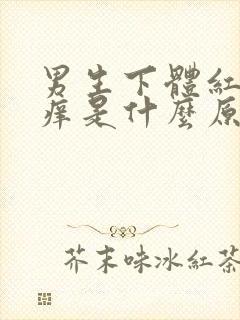 男生下體紅
痒是什麼原
芥末味冰紅茶